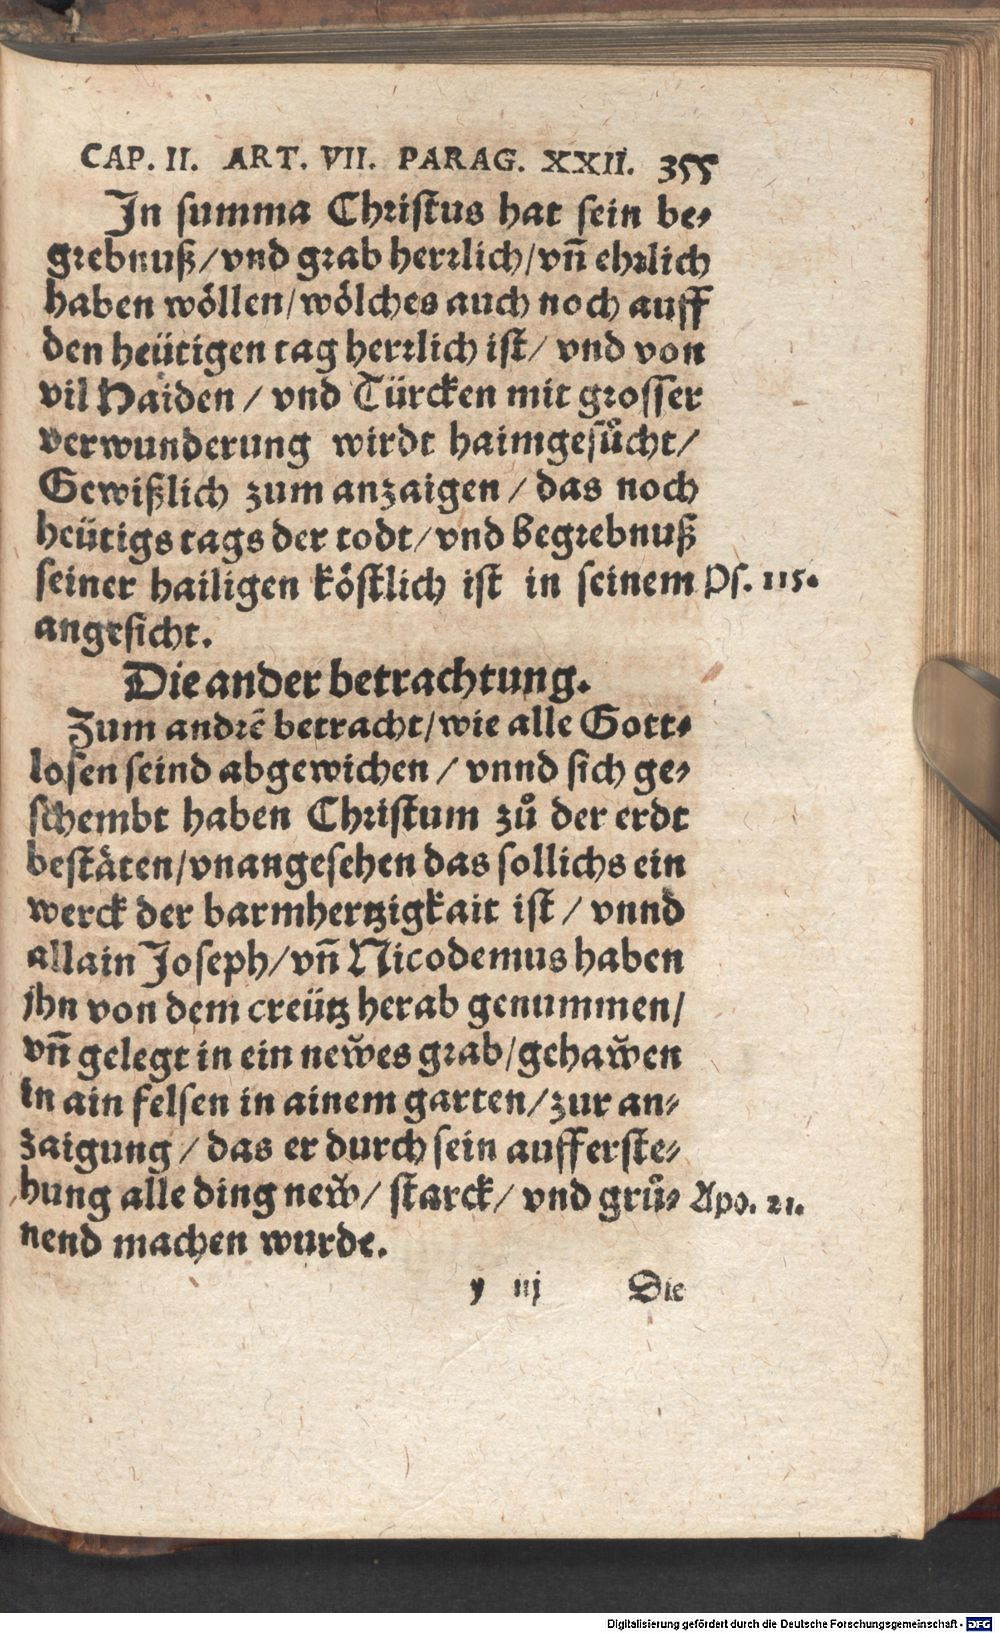 CAP. II. ART. VII. PARAG. XXII. 355
In summa Christus hat sein be⸗
grebnuß/vnd grab herrlich/vñ ehrlich
haben wöllen/wölches auch noch auff
den heütigen tag herrlich ist/ vnd von
vil Haiden / vnd Türcken mit grosser
verwunderung wirdt haimgesůcht/
Gewißlich zum anzaigen / das noch
heütigs tags der todt/vnd begrebnuß
seiner hailigen köstlich ist in seinem Ps. 115.
angesicht.
Die ander betrachtung.
Zum andrē betracht/wie alle Gott⸗
losen seind abgewichen / vnnd sich ge⸗
schembt haben Christum zů der erdt
bestäten/vnangesehen das sollichs ein
werck der barmhertzigkait ist / vnnd
allain Joseph/vñ Nicodemus haben
jhn von dem creütz herab genummen/
vñ gelegt in ein new̃es grab/gehaw̃en
in ain felsen in ainem garten/zur an⸗
zaigung / das er durch sein aufferste⸗
hung alle ding new̃/ starck/ vnd grů⸗ Apo. 21.
nend machen wurde.
y iij Die
Digitalisierung gefördert durch die Deutsche Forschungsgemeinschaft - DFG